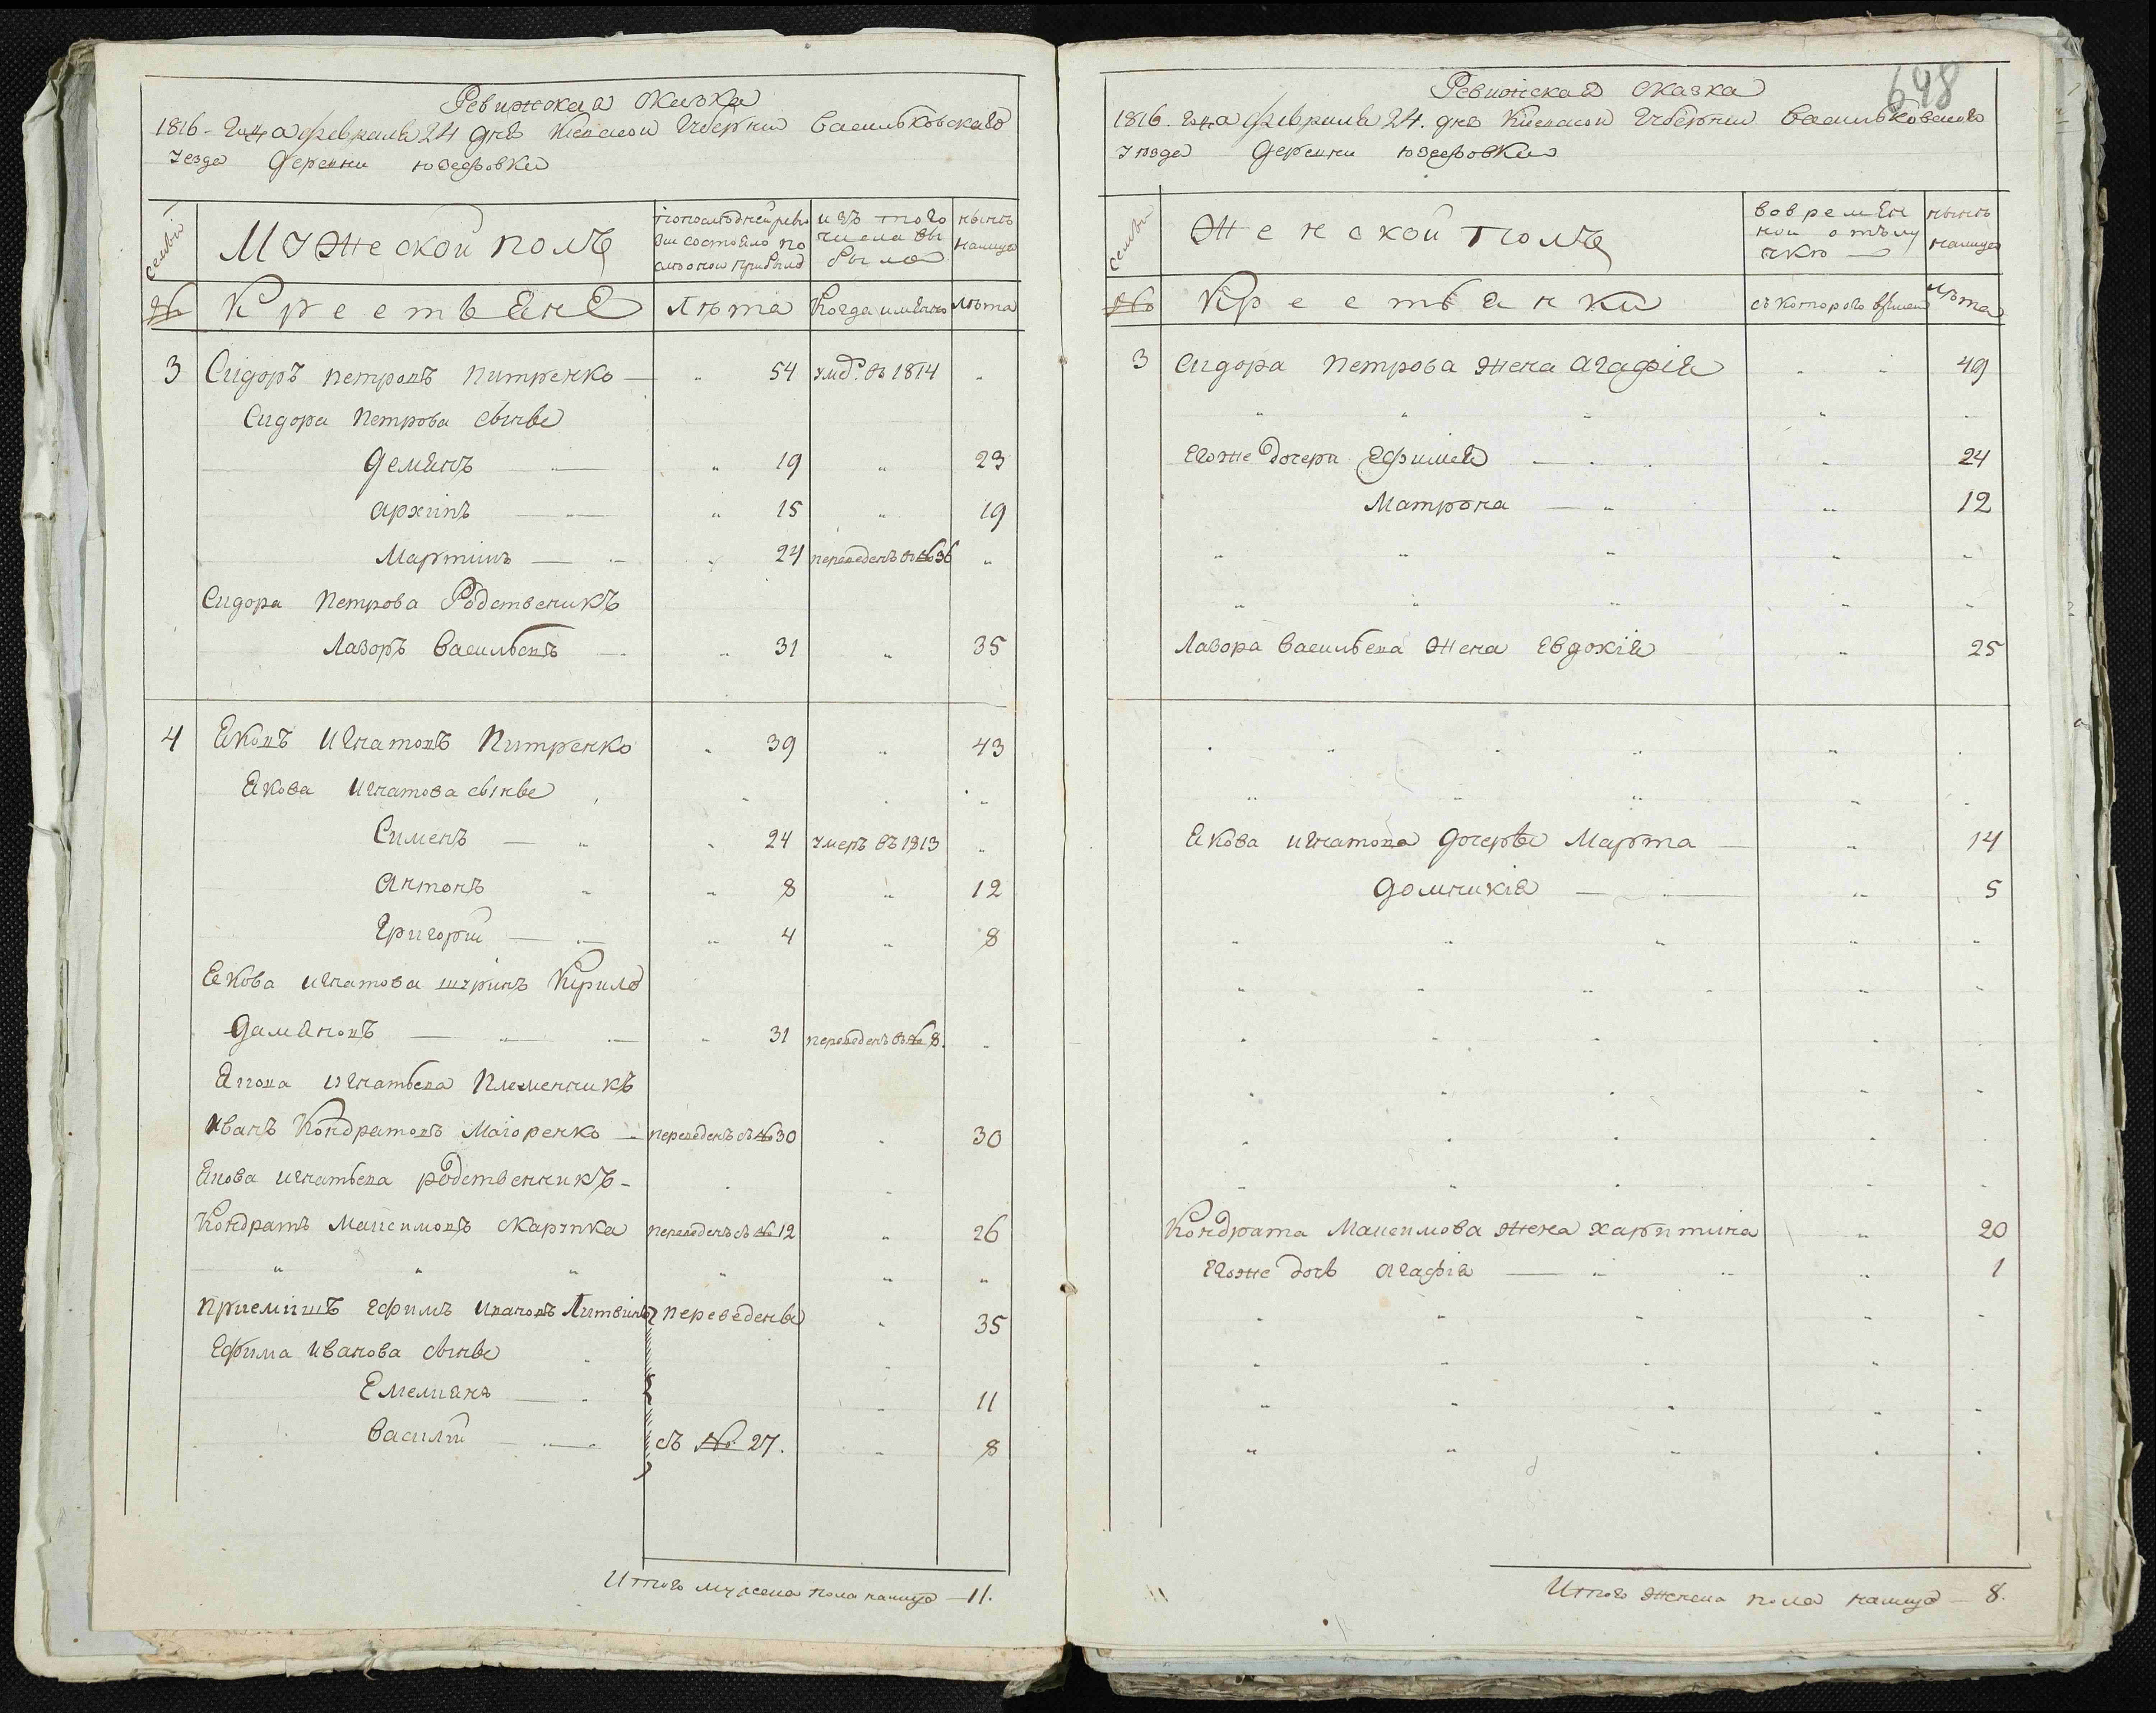 Ревижская сказка
1816 года февраля 24 дня Киевской Губернии Васильковскаго
уезда деревни Юзефовки
семьи
Мужеской полъ
по последней реви
зии состояло по
сле оной прибыло
изъ того
числа вы
было
нынѣ
налицо
№
Крестьяне
лѣта
Когда имянно
лѣта
3 Сидоръ Петровъ Питренко — " 54 умеръ въ 1814 "
Сидора Петрова сынве
Демянъ — " 19 " 23
Архипъ — " 15 " 19
Мартинъ — " 24 переведенъ въ № 36 "
Сидора Петрова Родственикъ
Лазоръ Васильевъ — " 31 " 35
4 Яковъ Игнатовъ Питренко " 39 " 43
Якова Игнатова сынве " " "
Сименъ — " " 24 умеръ въ 1813 "
Антонъ " " 8 " 12
Григорій — " 4 " 8
Якова Игнатова шуринъ Кирило
Дамяновъ — " — " 31 переведенъ въ № 8. "
Якова Игнатьева Племенникъ
Иванъ Кондратовъ Маіоренко — переведенъ съ № 30 " 30
Якова Игнатьева родственникъ - " "
Кондратъ Максимовъ скарупка переведенъ съ № 12 " 26
" " " " " "
Приемишъ Ефимъ Ивановъ Литвинъ переведены " 35
Ефима Иванова сынве " "
Емелианъ — " " 11
Василій — " съ № 27. " 8
Итого мужеска пола налицо — 11.
698
Ревижская сказка
1816. года февраля 24. дня Киевской Губернии Васильковскаго
уезда деревни Юзефовки
семьи
Женской полъ
во времян
ной отлу
чкѣ —
нынѣ
налицо
№
Крестьянки
съ которого времени
лѣта
3 Сидора Петрова жена Агафія " " 49
" " " " "
Егоже дочери Ефимія — " " " 24
Матрона — " " 12
" " " " "
" " " " "
Лазора Васильева жена Евдокія " 25
" " " " " "
" " " " "
Якова Игнатова дочерѣ Марта — " 14
Домникія — " — " 5
" " " " "
" " " " " "
" " " " "
" " " " "
" " " " "
" " " " "
Кондрата Максимова жена Харитина " 20
Егоже дочь Агафія — " " " 1
" " " " "
" " " " "
" " " " "
" " " " "
Итого женска пола налицо — 8.